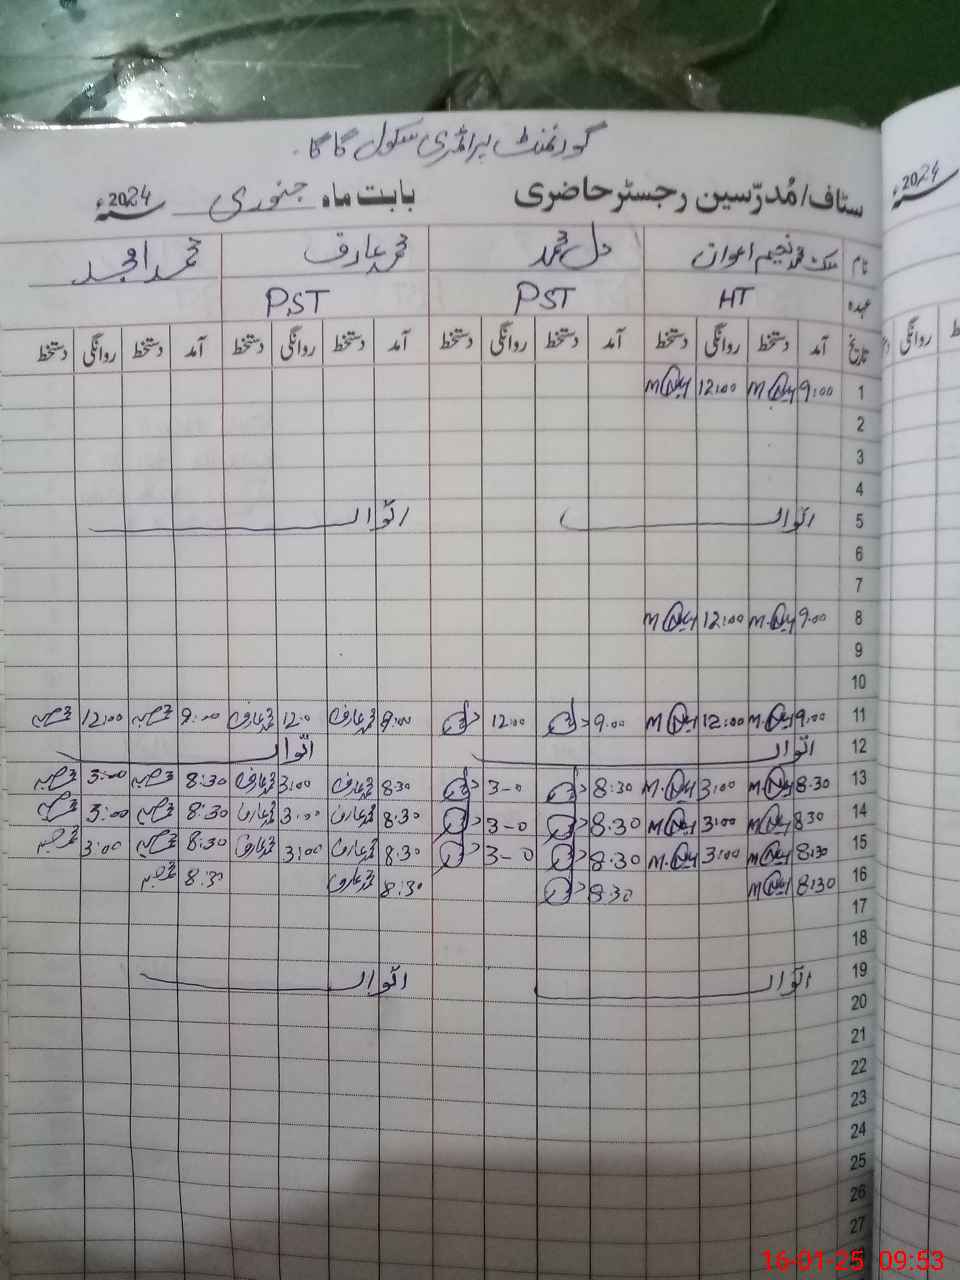 گورنمنٹ پرائمری سکول گاگا.
سٹاف/مُدرّسین رجسٹر حاضری بابت ماہ جنوری 2024ء
2024ء
نام ملک محمد نعیم اعوان دل محمد محمد عارف محمد امجد
عہدہ HT PST P.ST
تاریخ آمد دستخط روانگی دستخط آمد دستخط روانگی دستخط آمد دستخط روانگی دستخط آمد دستخط روانگی دستخط
روانگی
1 9:00 12:00
2
3
4
5 اتوار اتوار
6
7
8 9.00 12:00
9
10
11 9:00 12:00 9.00 12:00 9:00 محمد عارف 12:0 محمد عارف 9:00 12:00
12 اتوار اتوار
13 8.30 3:00 8:30 3-0 8:30 محمد عارف 3:00 محمد عارف 8:30 3:00
14 8:30 3:00 8.30 3-0 8.30 محمد عارف 3:00 محمد عارف 8:30 3:00
15 8:30 3:00 8.30 3-0 8.30 محمد عارف 3:00 محمد عارف 8:30 3:00
16 8:30 8:30 8:30 محمد عارف 8:30
17
18
19 اتوار اتوار
20
21
22
23
24
25
26
27
16-01-25 09:53